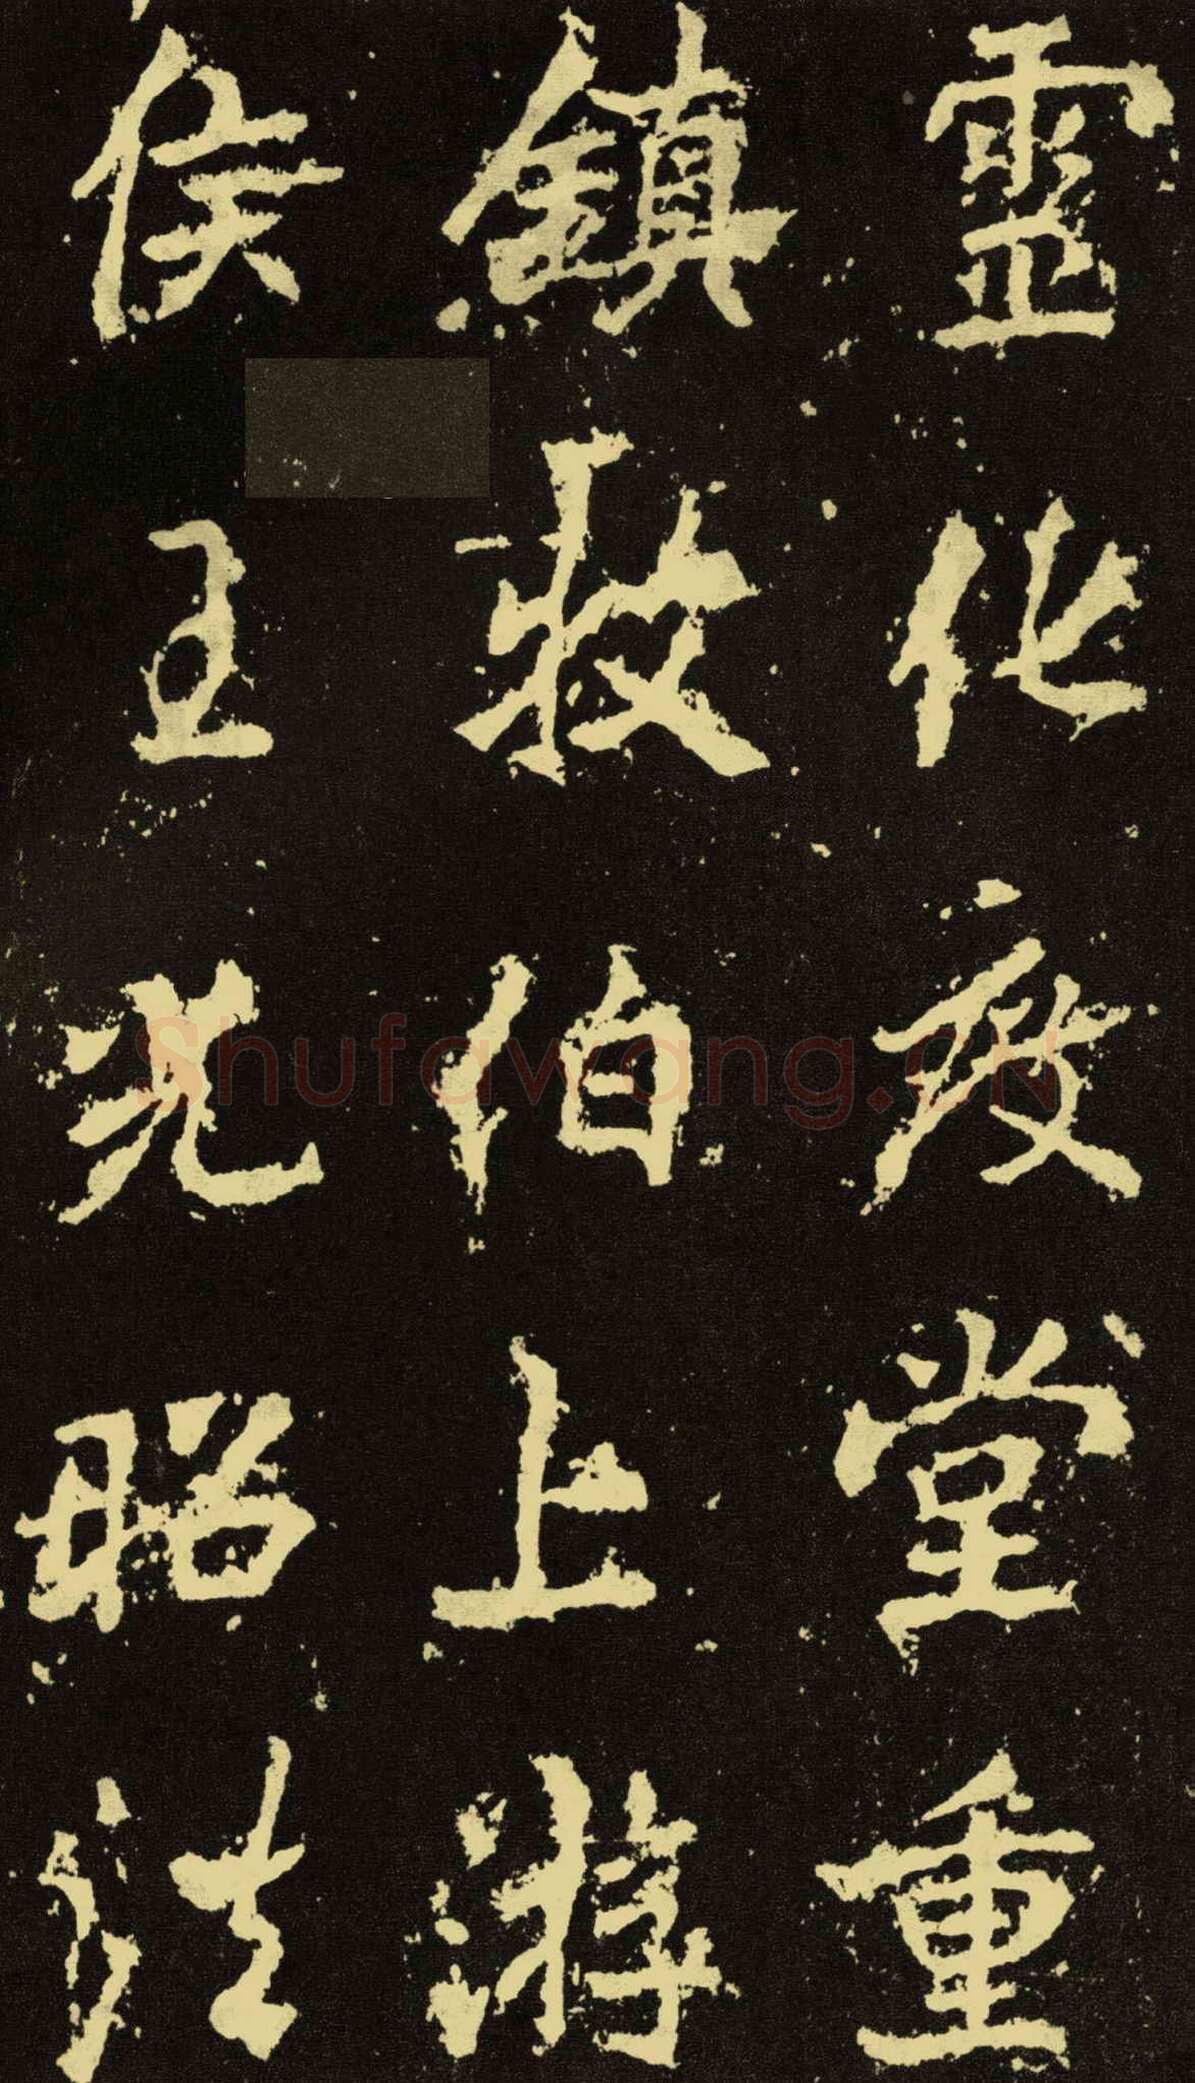 靈化度堂重
鎮牧伯上游
侯王光昭法
Shufawang.CN